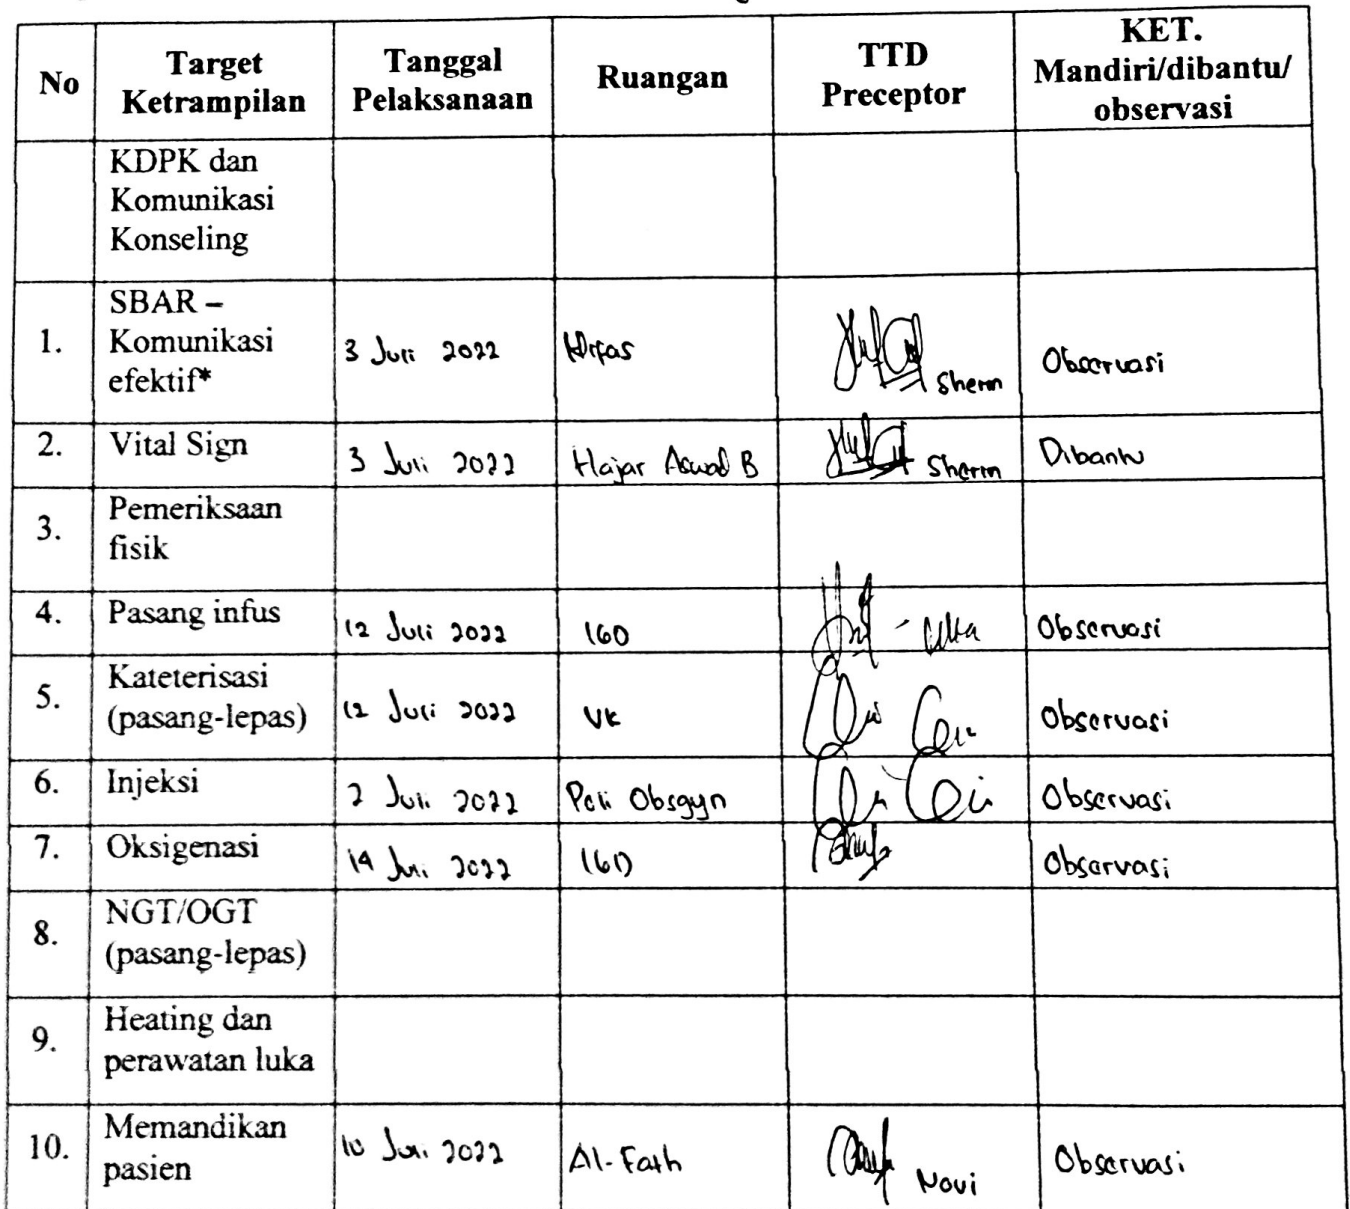 No
Target
Ketrampilan
Tanggal
Pelaksanaan
Ruangan
TTD
Preceptor
KET.
Mandiri/dibantu/
observasi
KDPK dan
Komunikasi
Konseling
1.
SBAR –
Komunikasi
efektif*
3 Juli 2022
Sherin
Observasi
2.
Vital Sign
3 Juli 2022
Hajar Aswad B
Sherin
Dibantu
3.
Pemeriksaan
fisik
4.
Pasang infus
12 Juli 2022
IGD
Observasi
5.
Kateterisasi
(pasang-lepas)
12 Juli 2022
VK
Observasi
6.
Injeksi
2 Juli 2022
Poli Obsgyn
Observasi
7.
Oksigenasi
14 Juli 2022
IGD
Observasi
8.
NGT/OGT
(pasang-lepas)
9.
Heating dan
perawatan luka
10.
Memandikan
pasien
10 Juli 2022
Al-Fath
Novi
Observasi